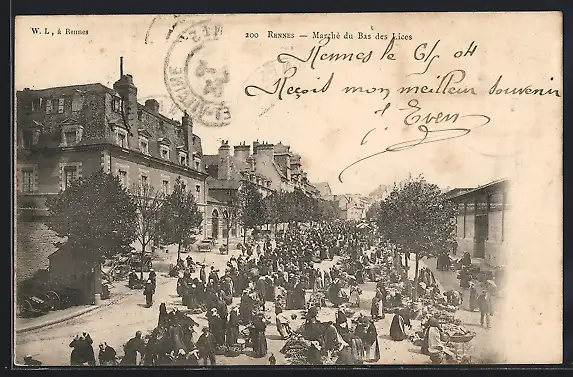 W. L., à Rennes
200 RENNES — Marché du Bas des Lices
Rennes le 6/5 04
Reçoit mon meilleur souvenir
Even